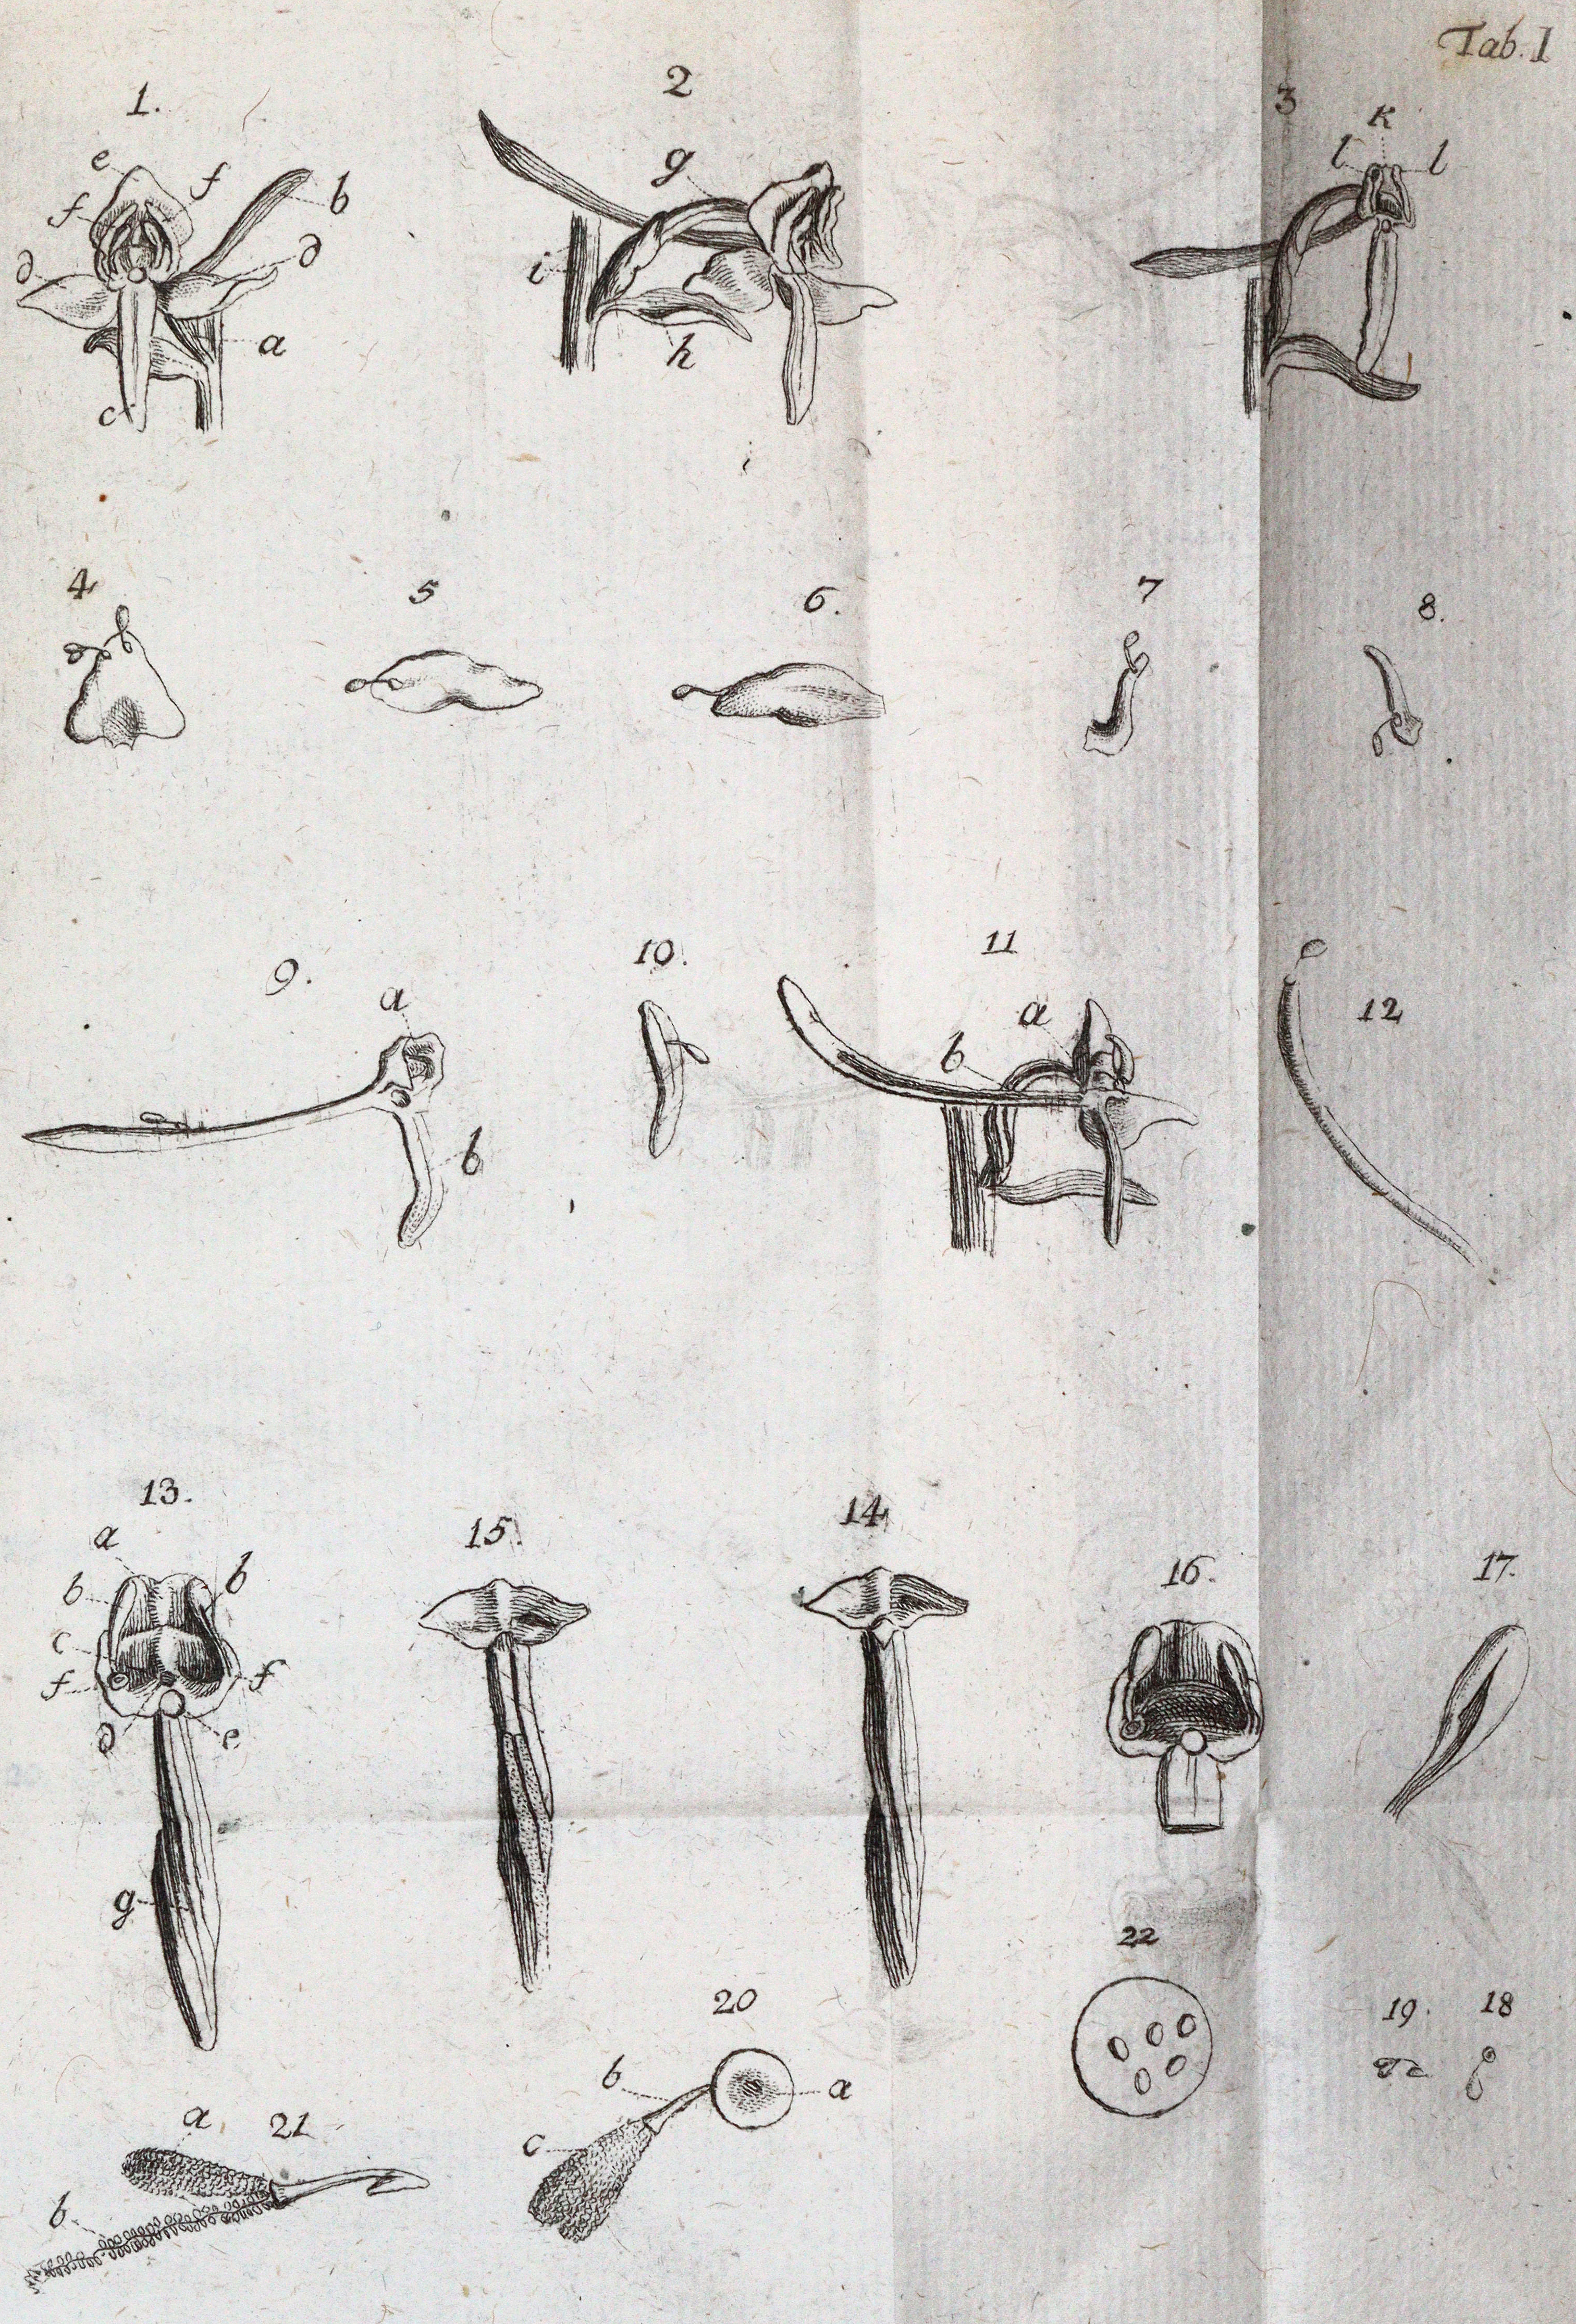 Tab. I
1.
2
3
e
f
f
b
d
d
a
c
g
i
h
k
l
l
4
5
6.
7
8.
9.
a
b
10.
11
a
b
12
13.
a
b
b
c
f
f
d
e
g
15.
14
16.
17.
22
19.
18
20
b
a
c
a
21
b